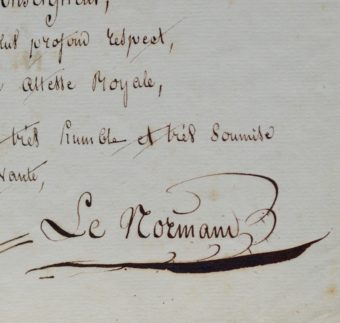 onseigneur,
plus profond respect,
Altesse Royale,
très humble et très soumise
vante,
Le Normand